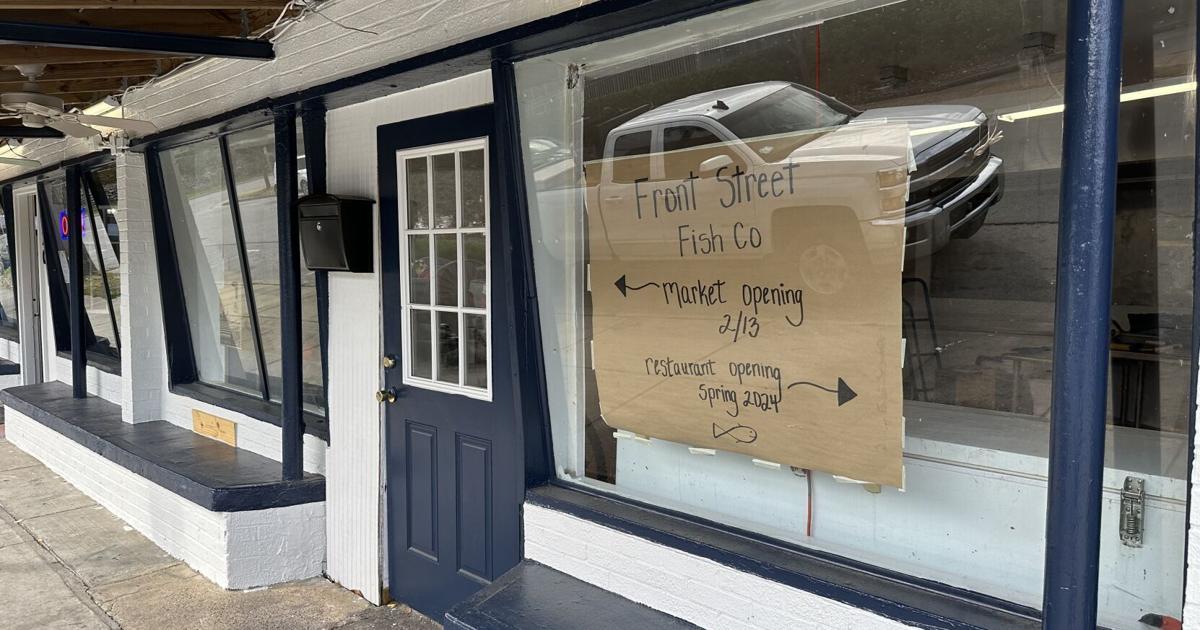 Front Street
Fish Co
market opening
2/13
restaurant opening
Spring 2024